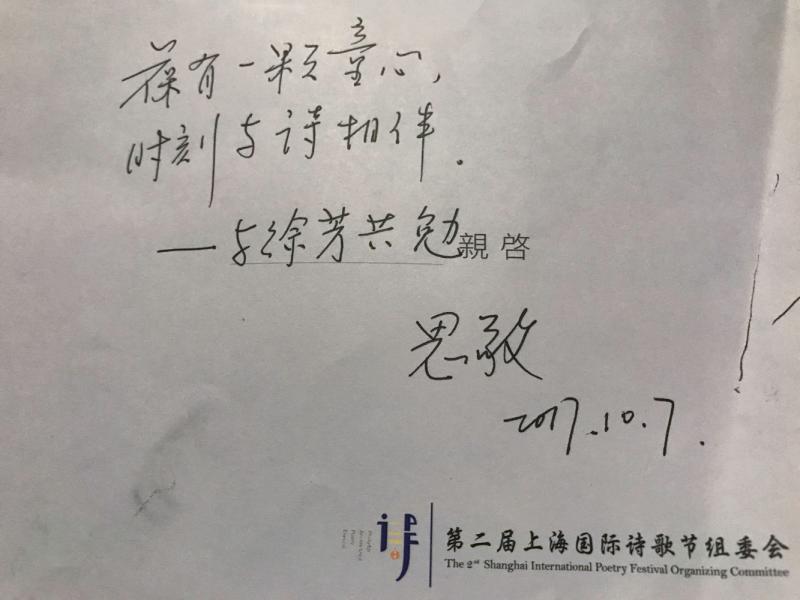 葆有一颗童心,
时刻与诗相伴.
——与徐芳共勉親啓
思敬
2017.10.7.
第二届上海国际诗歌节组委会
The 2nd Shanghai International Poetry Festival Organizing Committee